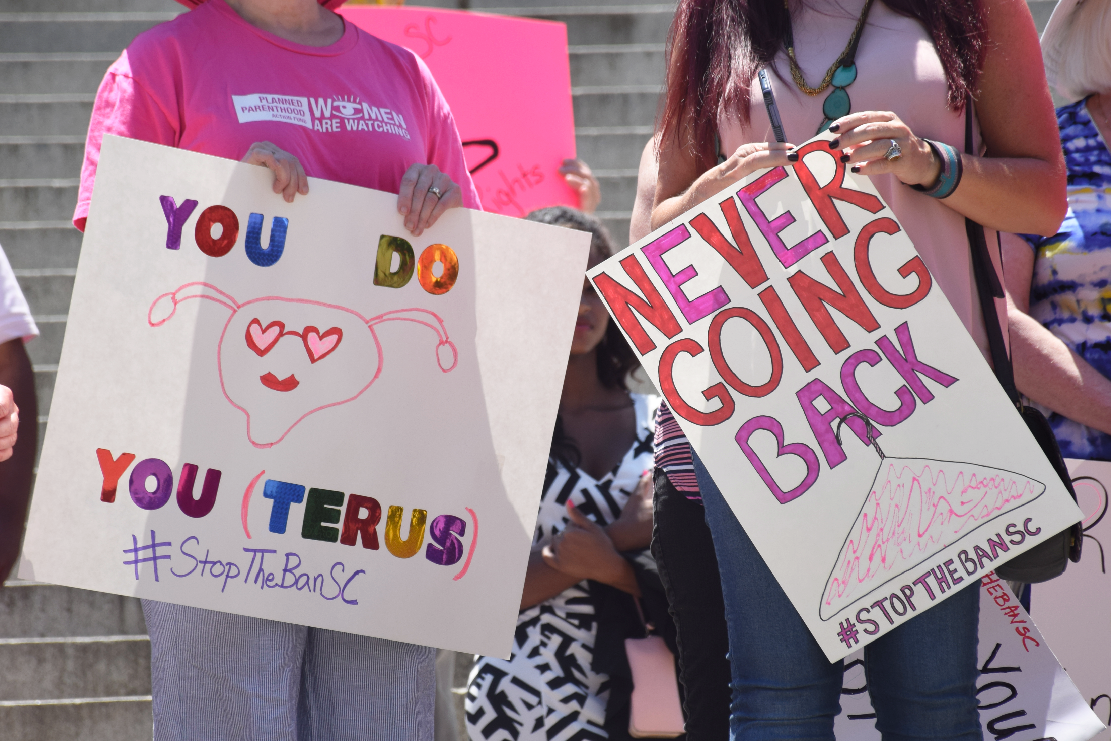 SC
Rights
PLANNED
PARENTHOOD
ACTION FUND
WOMEN
ARE WATCHING
YOU DO
YOU (TERUS)
#StopTheBanSC
NEVER
GOING
BACK
#STOPTHEBANSC
THEBANSC
YOU